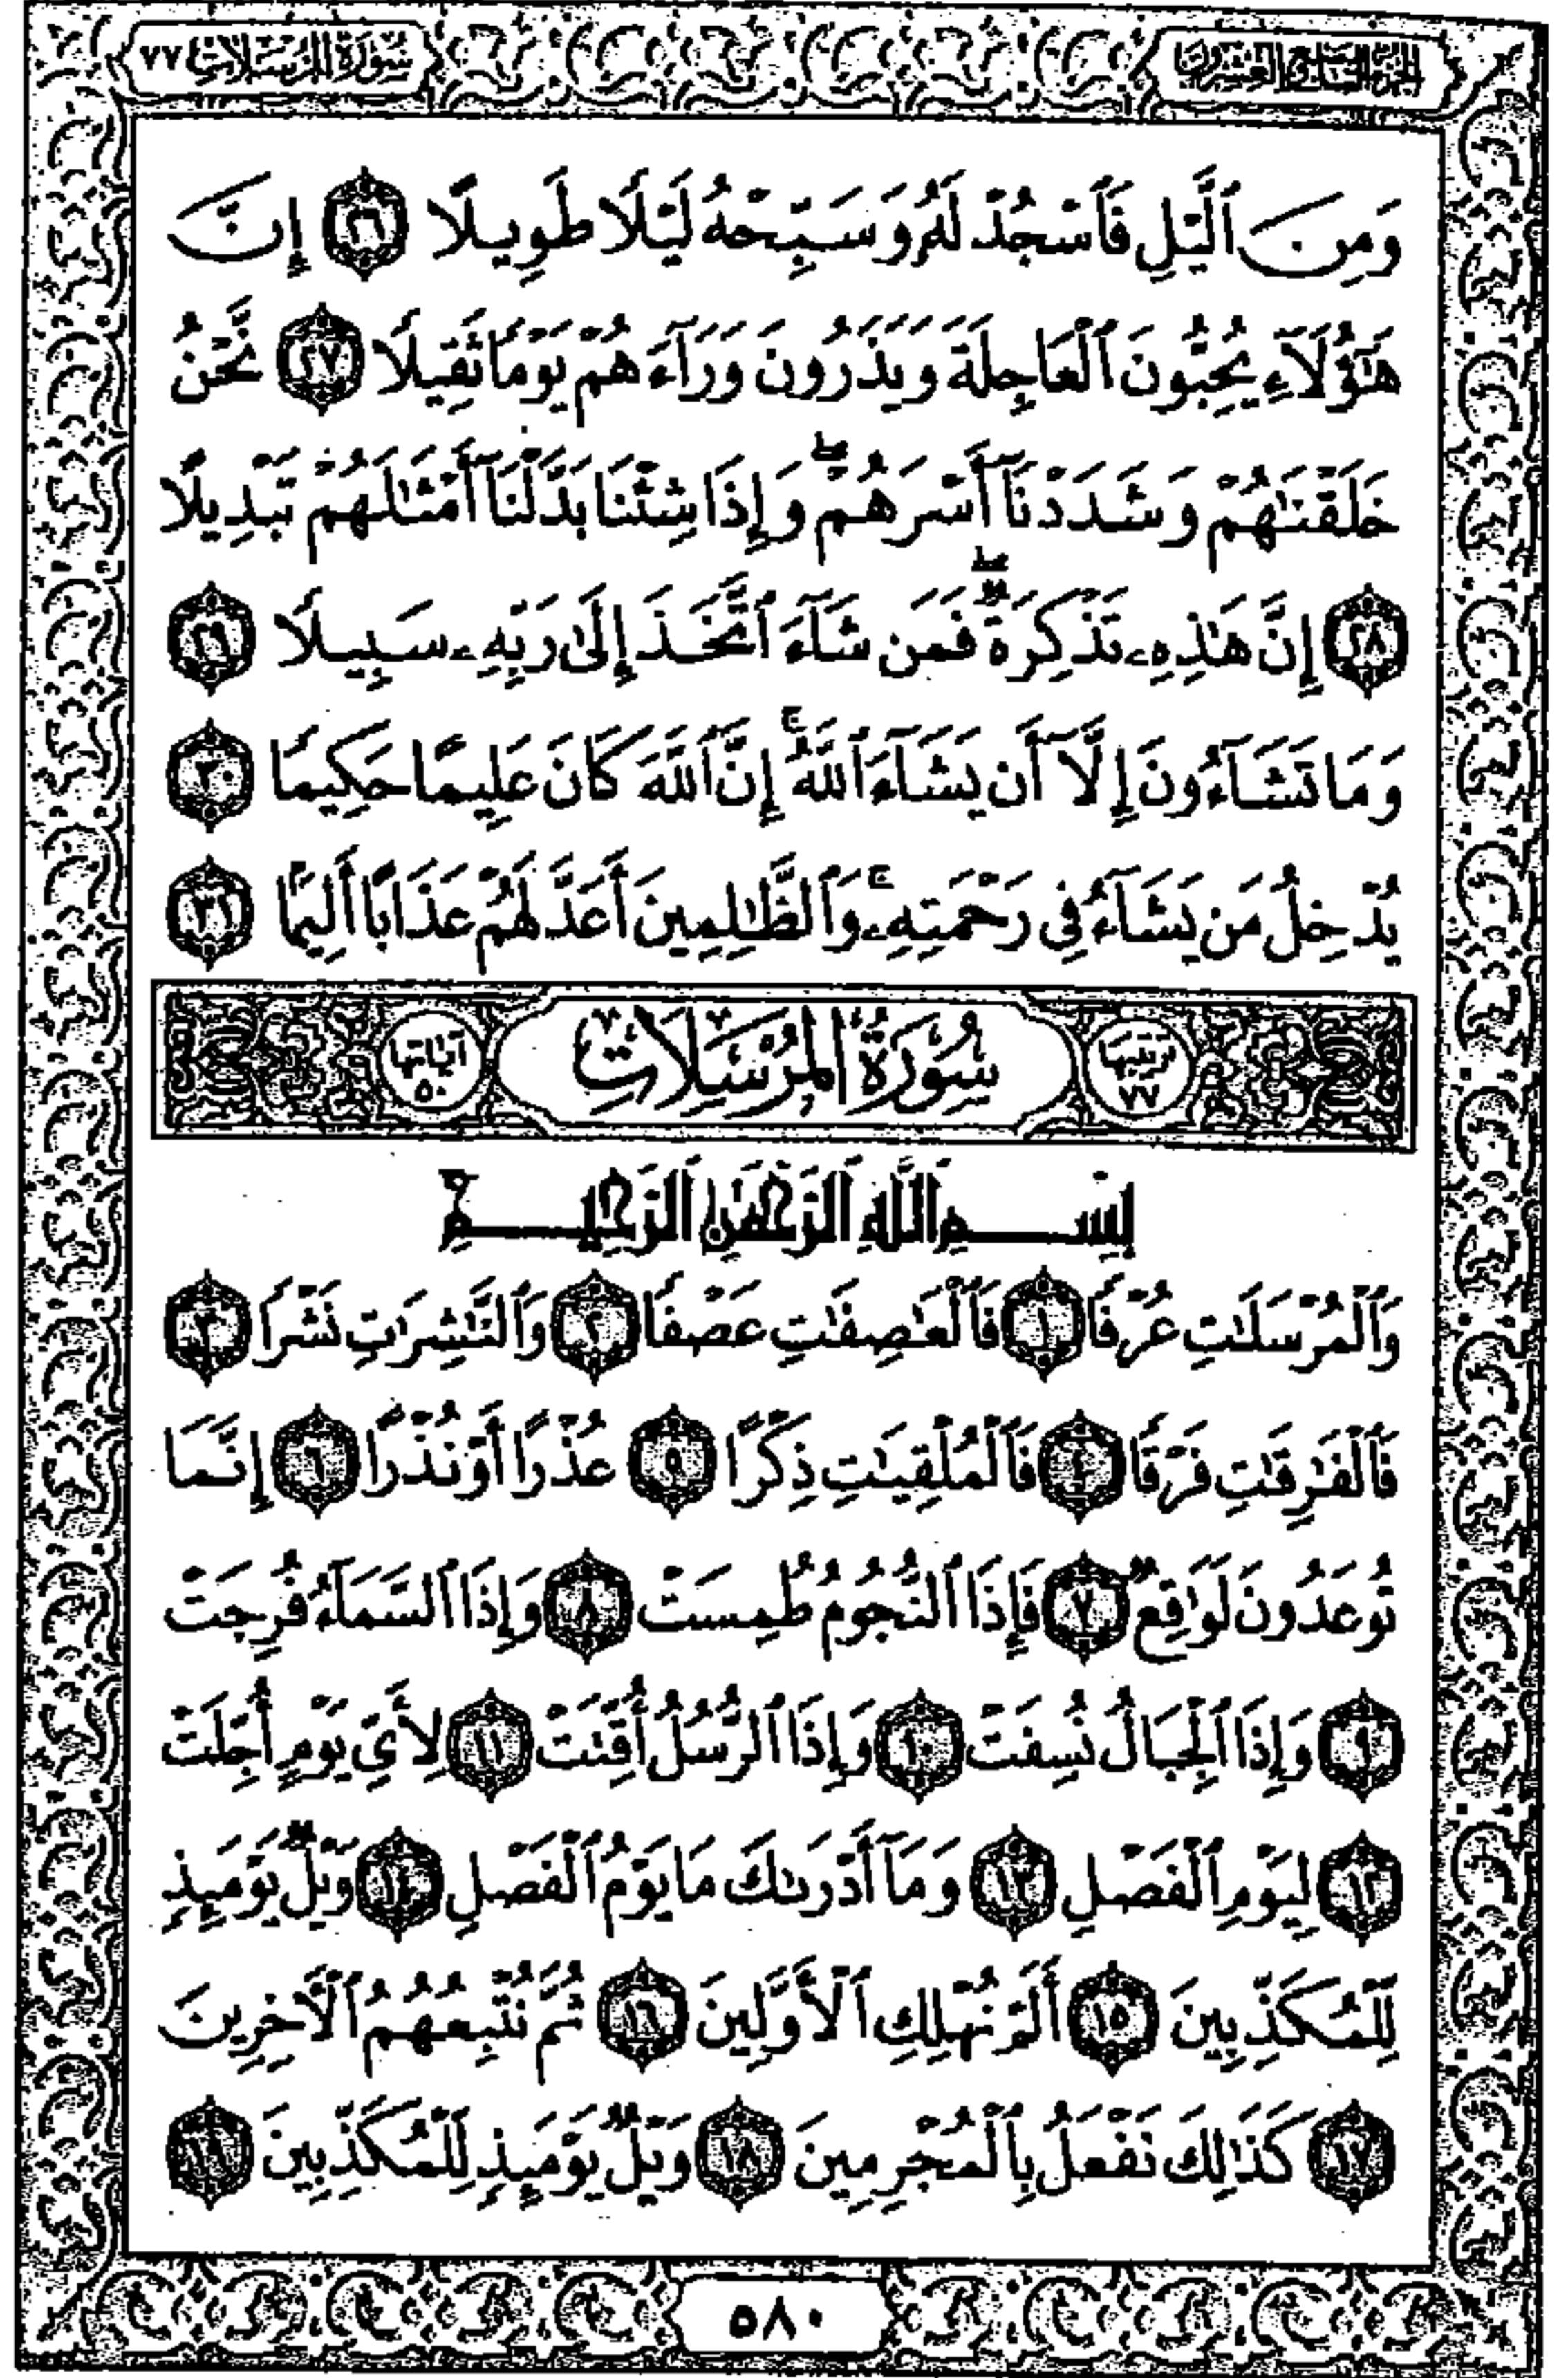 الجزء التاسع والعشرون
سُورَةُ المُرْسَلات ٧٧
وَمِنَ ٱلَّيْلِ فَٱسْجُدْ لَهُۥ وَسَبِّحْهُ لَيْلًا طَوِيلًا ٢٦ إِنَّ
هَٰٓؤُلَآءِ يُحِبُّونَ ٱلْعَاجِلَةَ وَيَذَرُونَ وَرَآءَهُمْ يَوْمًا ثَقِيلًا ٢٧ نَّحْنُ
خَلَقْنَٰهُمْ وَشَدَدْنَآ أَسْرَهُمْ ۖ وَإِذَا شِئْنَا بَدَّلْنَآ أَمْثَٰلَهُمْ تَبْدِيلًا
٢٨ إِنَّ هَٰذِهِۦ تَذْكِرَةٌ ۖ فَمَن شَآءَ ٱتَّخَذَ إِلَىٰ رَبِّهِۦ سَبِيلًا ٢٩
وَمَا تَشَآءُونَ إِلَّآ أَن يَشَآءَ ٱللَّهُ ۚ إِنَّ ٱللَّهَ كَانَ عَلِيمًا حَكِيمًا ٣٠
يُدْخِلُ مَن يَشَآءُ فِى رَحْمَتِهِۦ ۚ وَٱلظَّٰلِمِينَ أَعَدَّ لَهُمْ عَذَابًا أَلِيمًۢا ٣١
ترتيبها ٧٧ سُورَةُ المُرْسَلَاتِ آياتها ٥٠
بِسْمِ ٱللَّهِ ٱلرَّحْمَٰنِ ٱلرَّحِيمِ
وَٱلْمُرْسَلَٰتِ عُرْفًا ١ فَٱلْعَٰصِفَٰتِ عَصْفًا ٢ وَٱلنَّٰشِرَٰتِ نَشْرًا ٣
فَٱلْفَٰرِقَٰتِ فَرْقًا ٤ فَٱلْمُلْقِيَٰتِ ذِكْرًا ٥ عُذْرًا أَوْ نُذْرًا ٦ إِنَّمَا
تُوعَدُونَ لَوَٰقِعٌ ٧ فَإِذَا ٱلنُّجُومُ طُمِسَتْ ٨ وَإِذَا ٱلسَّمَآءُ فُرِجَتْ
٩ وَإِذَا ٱلْجِبَالُ نُسِفَتْ ١٠ وَإِذَا ٱلرُّسُلُ أُقِّتَتْ ١١ لِأَىِّ يَوْمٍ أُجِّلَتْ
١٢ لِيَوْمِ ٱلْفَصْلِ ١٣ وَمَآ أَدْرَىٰكَ مَا يَوْمُ ٱلْفَصْلِ ١٤ وَيْلٌ يَوْمَئِذٍ
لِّلْمُكَذِّبِينَ ١٥ أَلَمْ نُهْلِكِ ٱلْأَوَّلِينَ ١٦ ثُمَّ نُتْبِعُهُمُ ٱلْءَاخِرِينَ
١٧ كَذَٰلِكَ نَفْعَلُ بِٱلْمُجْرِمِينَ ١٨ وَيْلٌ يَوْمَئِذٍ لِّلْمُكَذِّبِينَ ١٩
٥٨٠